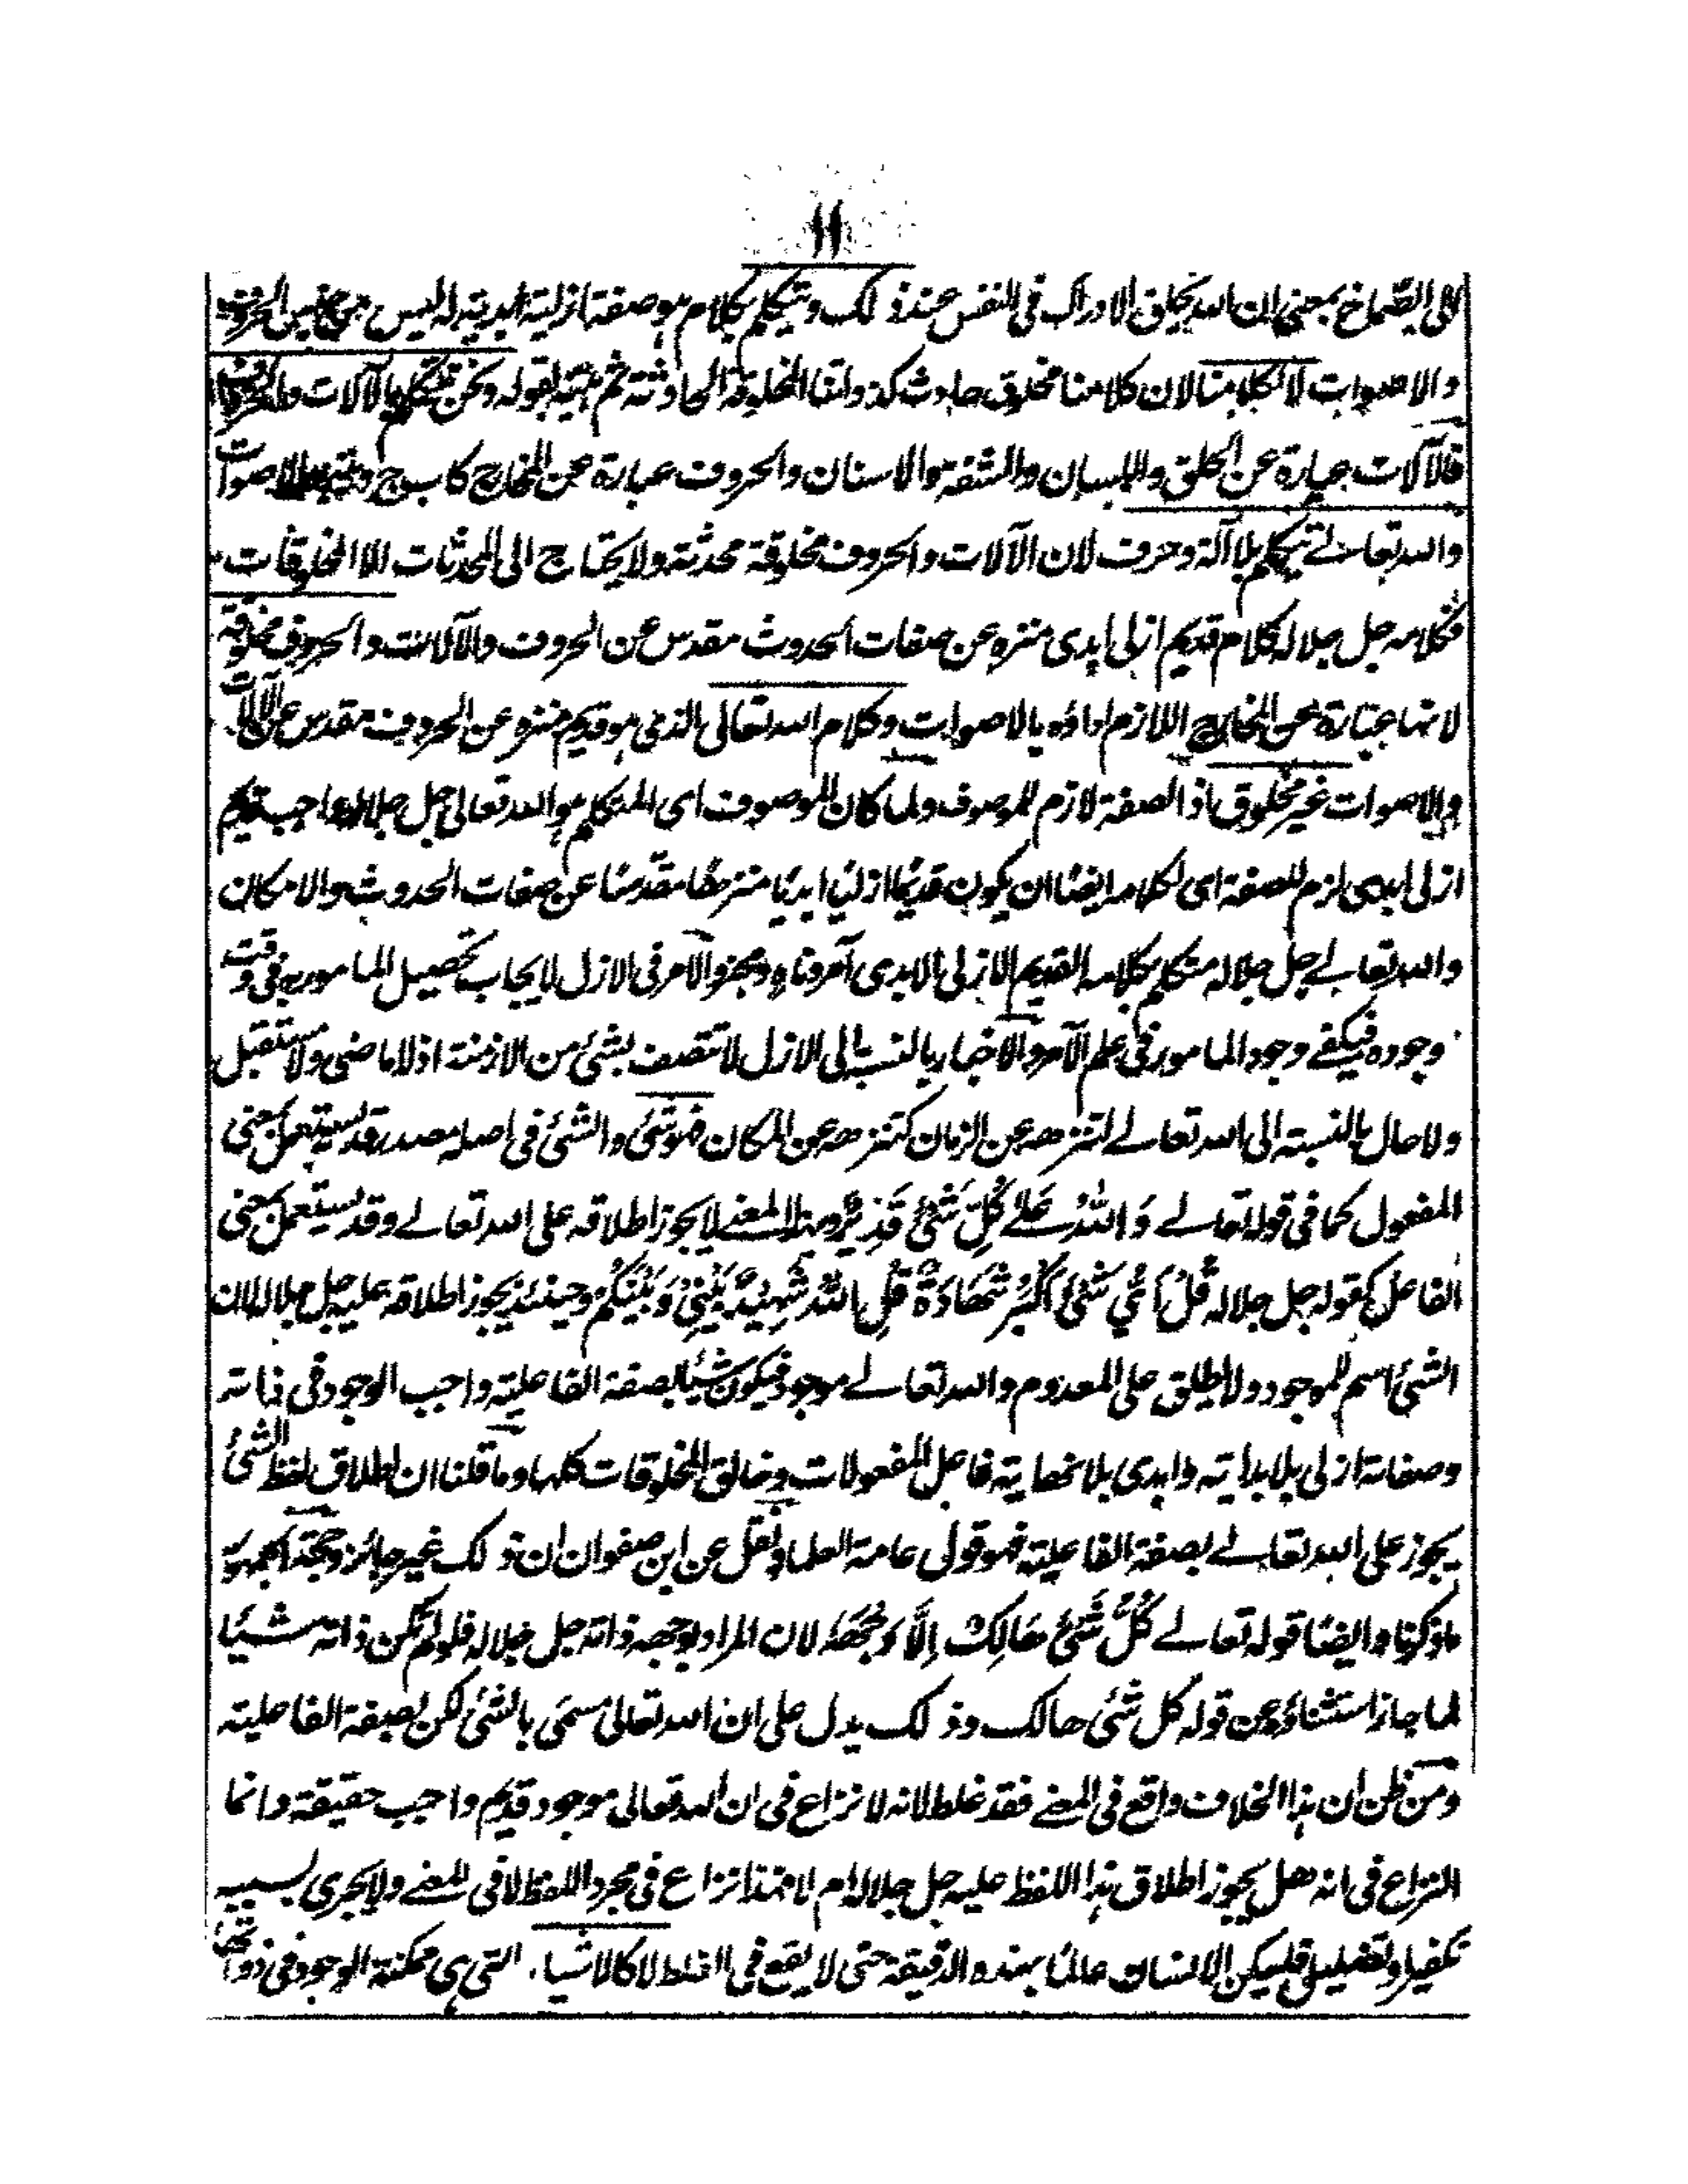 ١١
الى الصماخ بمعنى ان الله يخلق الادراك فى النفس عند ذلك ويتكلم بكلام هو صفة ازلية ابدية له ليس من جنس الحروف
والاصوات لا ككلامنا لان كلامنا مخلوق حادث كذواتنا المخلوقة الحادثة ثم بينه بقوله ونحن نتكلم بالآلات والحروف
فالآلات عبارة عن الحلق واللسان والشفة والاسنان والحروف عبارة عن المخارج كا ب ج د الاصوات
والله تعالے يتكلم بلا آلة وحرف لان الآلات والحروف مخلوقة محدثة ولا يحتاج الى المحدثات الا المخلوقات
فكلامه جل جلاله كلام قديم ازلى ابدى منزه عن صفات الحدوث مقدس عن الحروف والآلات والحروف مخلوقة
لانها عبارة عن المخارج اللازم اداؤه بالاصوات وكلام الله تعالى الذى هو قديم منزه عن الحروف مقدس عن الآلات
والاصوات غير مخلوق اذ الصفة لازم للموصوف ولما كان الموصوف اى المتكلم هو الله تعالى جل جلاله واجب قديم
ازلى ابدى لزم للصفة اى لكلامه ايضًا ان يكون قديمًا ازليًا ابديًا منزهًا مقدسًا عن صفات الحدوث والامكان
والله تعالے جل جلاله متكلم بكلامه القديم الازلى الابدى آمر وناه ومخبر والامر فى الازل لايجاب تحصيل المامور به فى وقت
وجوده فيكفے وجود المامور فى علم الآمر والاخبار بالنسبة الى الازل لا تتصف بشئ من الازمنة اذ لا ماضى ولا مستقبل
ولا حال بالنسبة الى الله تعالے لتنزهه عن الزمان كتنزهه عن المكان فهو شئ والشئ فى اصله مصدر قد يستعمل بمعنى
المفعول كما فى قوله تعالے وَ اللّٰهُ عَلٰے كُلِّ شَئٍ قَدِيْرٌ وبهذا المعنے لا يجوز اطلاقه على الله تعالے وقد يستعمل بمعنى
الفاعل كقوله جل جلاله قُلْ اَىُّ شَئٍ اَكْبَرُ شَهَادَةً قُلِ اللّٰهُ شَهِيْدٌ بَيْنِىْ وَبَيْنَكُمْ وحينئذ يجوز اطلاقه عليه جل جلاله لان
الشئ اسم للموجود ولا يطلق على المعدوم والله تعالے موجود فيكون شيئًا بصفة الفاعلية واجب الوجود فى ذاته
وصفاته ازلى بلا بداية وابدى بلا نهاية فاعل المفعولات وخالق المخلوقات كلها وما قلنا ان اطلاق لفظ الشئ
يجوز على الله تعالے بصفة الفاعلية فهو قول عامة العلماء ونقل عن ابن صفوان ان ذلك غير جائز وحجة الجمهور
ما ذكرنا وايضًا قوله تعالے كُلُّ شَئٍ هَالِكٌ اِلَّا وَجْهَهٗ لان المراد بوجهه ذاته جل جلاله فلو لم تكن ذاته شيئًا
لما جاز استثناؤه عن قوله كل شئ هالك وذلك يدل على ان الله تعالى مسمى بالشئ لكن بصفة الفاعلية
ومن ظن ان هذا الخلاف واقع فى المعنے فقد غلط لانه لا نزاع فى ان الله تعالى موجود قديم واجب حقيقة وانما
النزاع فى انه هل يجوز اطلاق هذا اللفظ عليه جل جلاله ام لا فهذا نزاع فى مجرد اللفظ لا فى المعنے ولا يجرى بسببه
تكفير وتضليل فليكن الانسان عالمًا بهذه الدقيقة حتى لا يقع فى الغلط لا كالاشياء التى هى ممكنة الوجود فى ذواتها